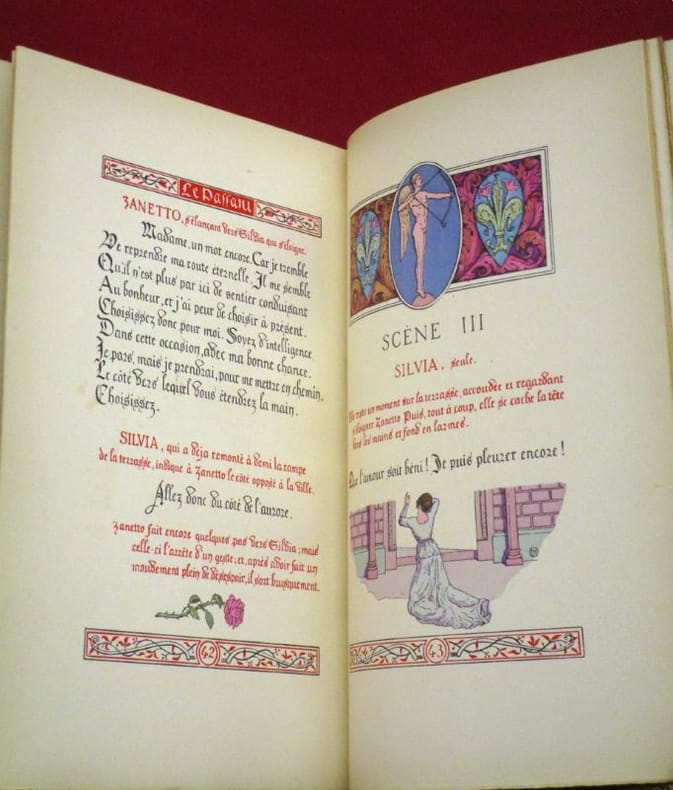 Le Passant
ZANETTO, s'élançant vers Silvia qui s'éloigne.
Madame, un mot encore. Car je tremble
De reprendre ma route éternelle. Il me semble
Qu'il n'est plus par ici de sentier conduisant
Au bonheur, et j'ai peur de choisir à présent.
Choisissez donc pour moi. Soyez d'intelligence
Dans cette occasion, avec ma bonne chance.
Je pars, mais je prendrai, pour me mettre en chemin,
Le côté vers lequel vous étendrez la main.
Choisissez.
SILVIA, qui a déja remonté à demi la rampe
de la terrasse, indique à Zanetto le côté opposé à la ville.
Allez donc du côté de l'aurore.
Zanetto fait encore quelques pas vers Silvia; mais
celle-ci l'arrête d'un geste; et, après avoir fait un
mouvement plein de désespoir, il sort brusquement.
42
SCÈNE III
SILVIA, seule.
reste un moment sur la terrasse, accoudée et regardant
s'éloigner Zanetto Puis, tout à coup, elle se cache la tête
dans les mains et fond en larmes.
Que l'amour soit béni! Je puis pleurer encore!
43